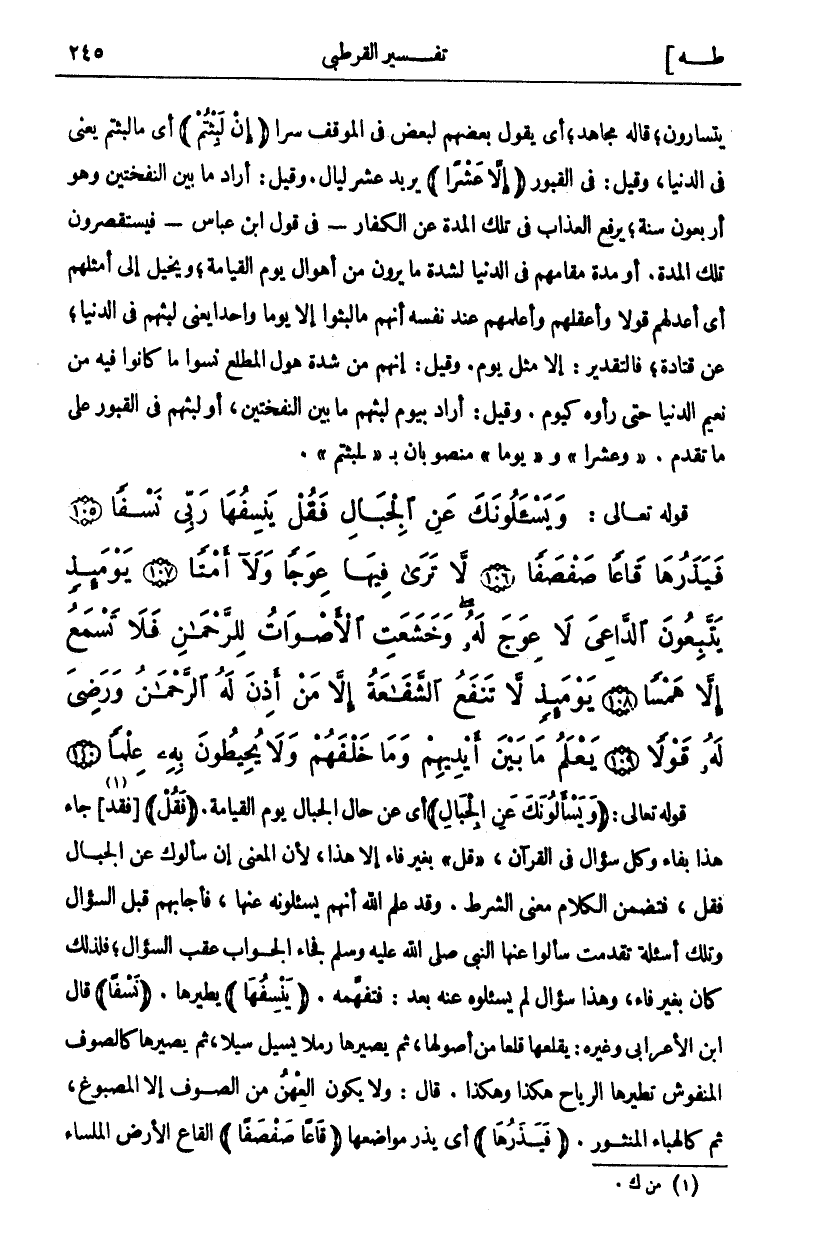 طـــه] تفـــسير القرطبى ٢٤٥
يتسارون؛ قاله مجاهد؛ أى يقول بعضهم لبعض فى الموقف سرا ﴿إِنْ لَبِثْتُمْ﴾ أى مالبثتم يعنى
فى الدنيا، وقيل: فى القبور ﴿إِلَّا عَشْرًا﴾ يريد عشر ليال. وقيل: أراد ما بين النفختين وهو
أربعون سنة؛ يرفع العذاب فى تلك المدة عن الكفار — فى قول ابن عباس — فيستقصرون
تلك المدة. أو مدة مقامهم فى الدنيا لشدة ما يرون من أهوال يوم القيامة؛ ويخيل إلى أمثلهم
أى أعدلهم قولا وأعقلهم وأعلمهم عند نفسه أنهم مالبثوا إلا يوما واحدا يعنى لبثهم فى الدنيا؛
عن قتادة؛ فالتقدير: إلا مثل يوم. وقيل: إنهم من شدة هول المطلع نسوا ما كانوا فيه من
نعيم الدنيا حتى رأوه كيوم. وقيل: أراد بيوم لبثهم ما بين النفختين، أو لبثهم فى القبور على
ما تقدم. «وعشرا» و«يوما» منصوبان بـ«لبثتم».
قوله تعـالى: وَيَسْـَٔلُونَكَ عَنِ ٱلْجِبَالِ فَقُلْ يَنسِفُهَا رَبِّى نَسْفًا ١٠٥
فَيَذَرُهَا قَاعًا صَفْصَفًا ١٠٦ لَّا تَرَىٰ فِيهَا عِوَجًا وَلَآ أَمْتًا ١٠٧ يَوْمَئِذٍ
يَتَّبِعُونَ ٱلدَّاعِىَ لَا عِوَجَ لَهُۥ ۖ وَخَشَعَتِ ٱلْأَصْوَاتُ لِلرَّحْمَـٰنِ فَلَا تَسْمَعُ
إِلَّا هَمْسًا ١٠٨ يَوْمَئِذٍ لَّا تَنفَعُ ٱلشَّفَـٰعَةُ إِلَّا مَنْ أَذِنَ لَهُ ٱلرَّحْمَـٰنُ وَرَضِىَ
لَهُۥ قَوْلًا ١٠٩ يَعْلَمُ مَا بَيْنَ أَيْدِيهِمْ وَمَا خَلْفَهُمْ وَلَا يُحِيطُونَ بِهِۦ عِلْمًا ١١٠
قوله تعالى: ﴿وَيَسْأَلُونَكَ عَنِ الْجِبَالِ﴾ أى عن حال الجبال يوم القيامة. ﴿فَقُلْ﴾ [فقد](١) جاء
هذا بفاء وكل سؤال فى القرآن، «قل» بغير فاء إلا هذا، لأن المعنى إن سألوك عن الجبـال
فقل، فتضمن الكلام معنى الشرط. وقد علم الله أنهم يسئلونه عنها، فأجابهم قبل السؤال
وتلك أسئلة تقدمت سألوا عنها النبى صلى الله عليه وسلم فجاء الجـواب عقب السؤال؛ فلذلك
كان بغير فاء، وهذا سؤال لم يسئلوه عنه بعد: فتفهَّمه. ﴿يَنْسِفُهَا﴾ يطيرها. ﴿نَسْفًا﴾ قال
ابن الأعرابى وغيره: يقلعها قلعا من أصولها، ثم يصيرها رملا يسيل سيلا، ثم يصيرها كالصوف
المنفوش تطيرها الرياح هكذا وهكذا. قال: ولا يكون العِهْنُ من الصـوف إلا المصبوغ،
ثم كالهباء المنثـور. ﴿فَيَـذَرُهَا﴾ أى يذر مواضعها ﴿قَاعًا صَفْصَفًا﴾ القاع الأرض الملساء
(١) من ك.